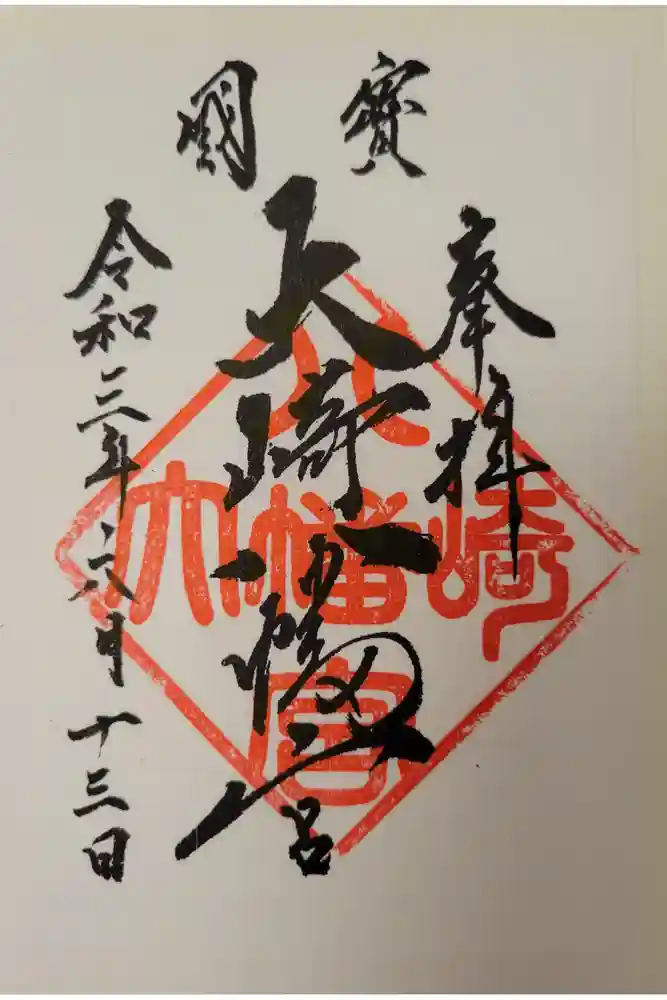 國寶
奉拝
大崎八幡宮
令和三年六月十三日
大崎八幡宮